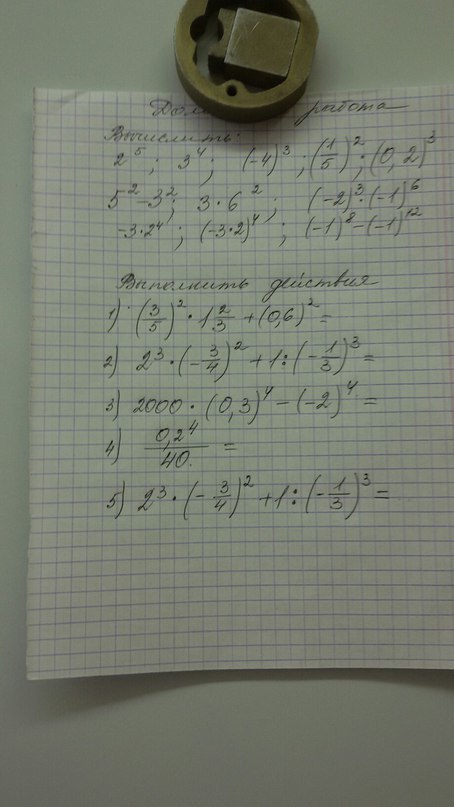 работа
Вычислить:
2^5; 3^4; (-4)^3; (1/5)^2; (0,2)^3
5^2-3^2; 3·6^2; (-2)^3·(-1)^6
-3·2^4; (-3·2)^4; (-1)^8-(-1)^12
Выполнить действия
1) (3/5)^2·1 2/3+(0,6)^2=
2) 2^3·(-3/4)^2+1:(-1/3)^3=
3) 2000·(0,3)^4-(-2)^4=
4) 0,2^4/40=
5) 2^3·(-3/4)^2+1:(-1/3)^3=